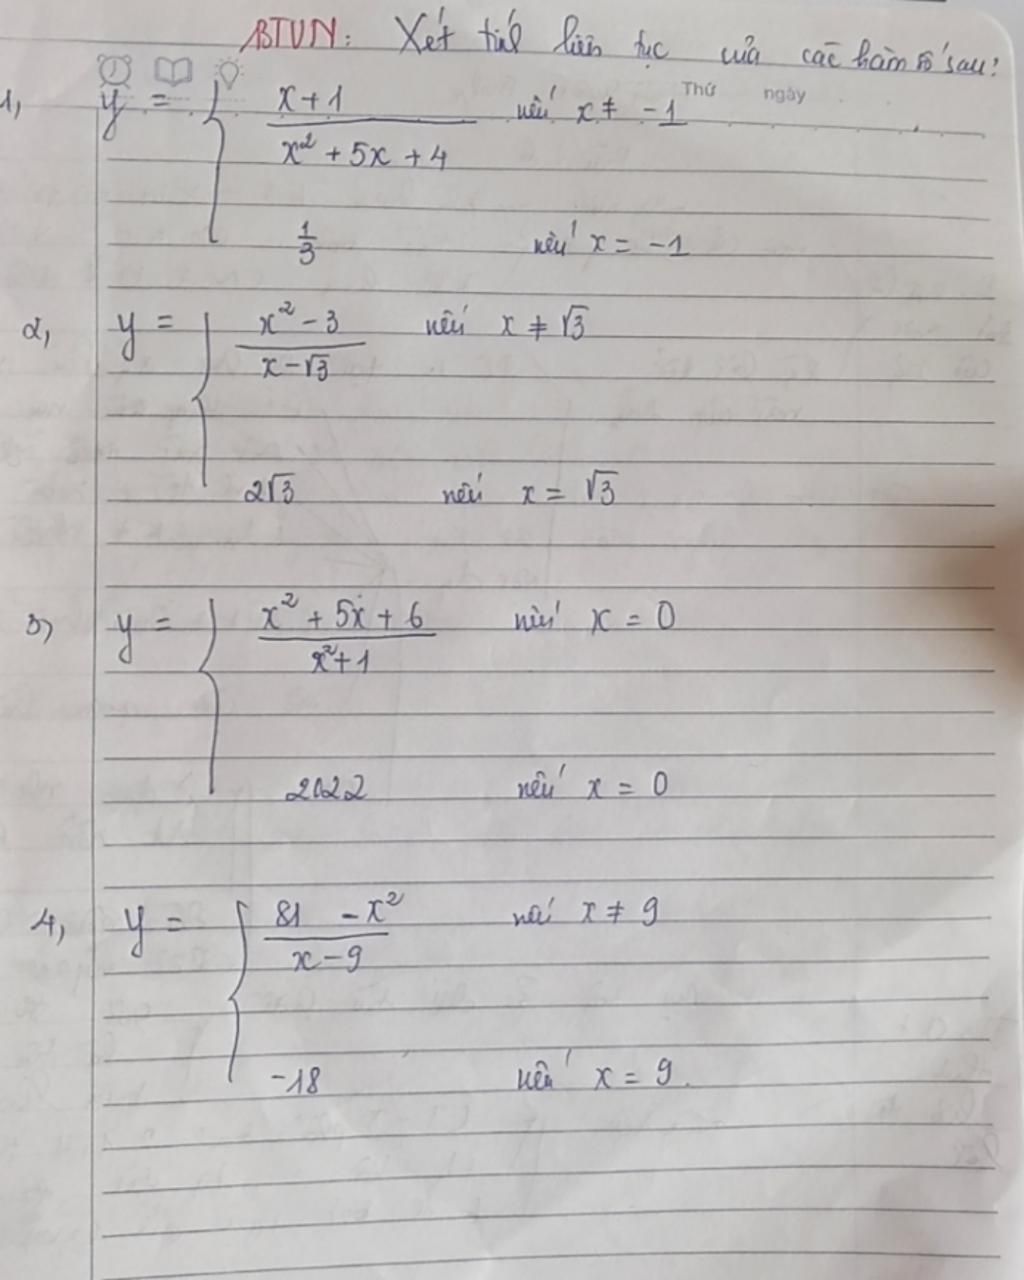 BTVN: Xét tính liên tục của các hàm số sau:
Thứ ngày
1, y = { x+1 / x² + 5x + 4 nếu x ≠ -1
1/3 nếu x = -1
2, y = { x² - 3 / x - √3 nếu x ≠ √3
2√3 nếu x = √3
3, y = { x² + 5x + 6 / x² + 1 nếu x = 0
2022 nếu x = 0
4, y = { 81 - x² / x - 9 nếu x ≠ 9
-18 nếu x = 9.